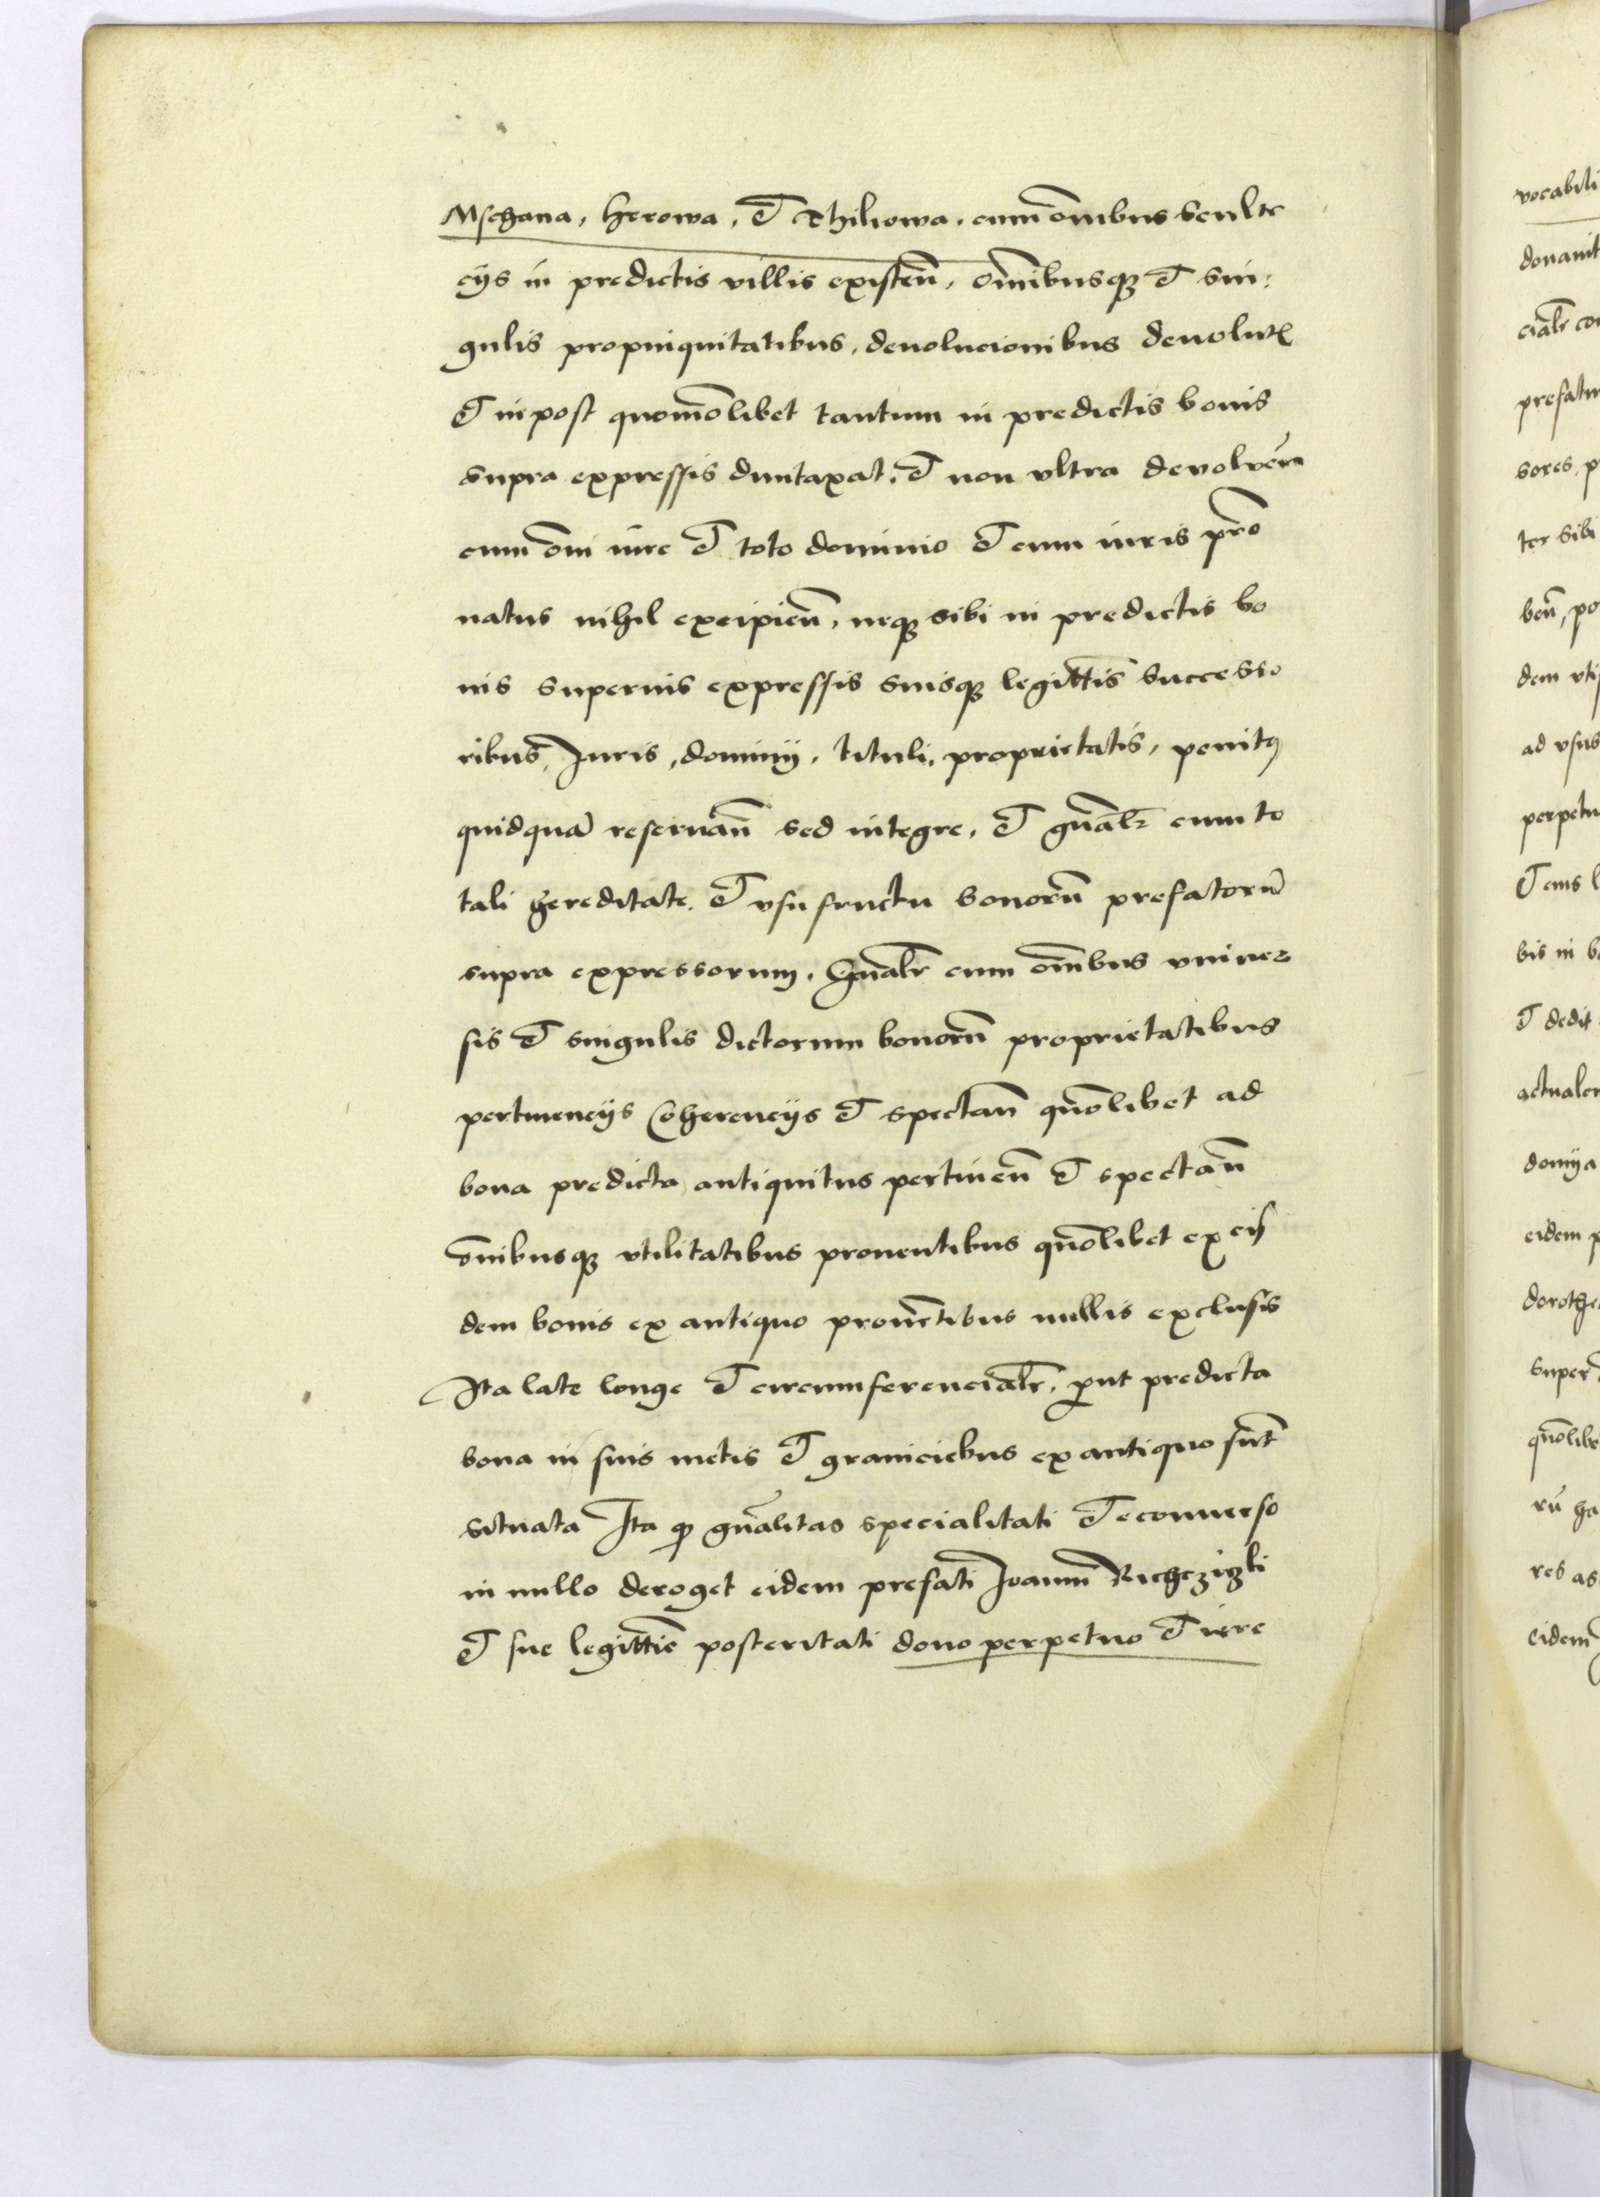 Mschana, herowa, et Thiliowa, cum omībus scultc
cijs in predictis villis existeñ, omībusq et sin:
gulis propinquitatibus, devolucionibus devolut
et inpost quomolibet tantum in predictis bonis
supra expressis duntaxat, et non vltra devolven
cum om̄i iure et toto dominio et cum iuris pr̄o
natus nihil excipieñ, neq sibi in predictis bo
nis supernis expressis suisq legittīs successo
ribus, Iuris, dominij, tituli, proprietatis, penitq
quidquā reservañ sed integre, et gn̄alr cum to
tali hereditate et vsufructu bonorū prefatorū
supra expressorum, Gn̄alr cum om̄ibus vniuer
sis et singulis dictorum bonorū proprietatibus
pertinencijs Coherencijs et spectañ quōlibet ad
bona predicta antiquitus pertineñ et spectañ
om̄ibusq vtilitatibus prouentibus quōlibet ex eis
dem bonis ex antiquo prouētibus nullis exclusis
Ita late longe et circumferencialr, put predicta
bona in suis metis et graniciebus ex antiquo sūt
situata Ita q gn̄alitas specialitati et econuerso
in nullo deroget eidem prefati Ioanni
et sue legittie posteritati dono perpetuo et iure
vocabili
donauit
cialr con
prefatu
sores, p
ter sibi
beñ, po
dem vti
ad vsus
perpetu
et eius l
bis in b
et dedit
actualem
domij a
eidem p
dorothe
super
quōlibe
rū ha
res as
eidem